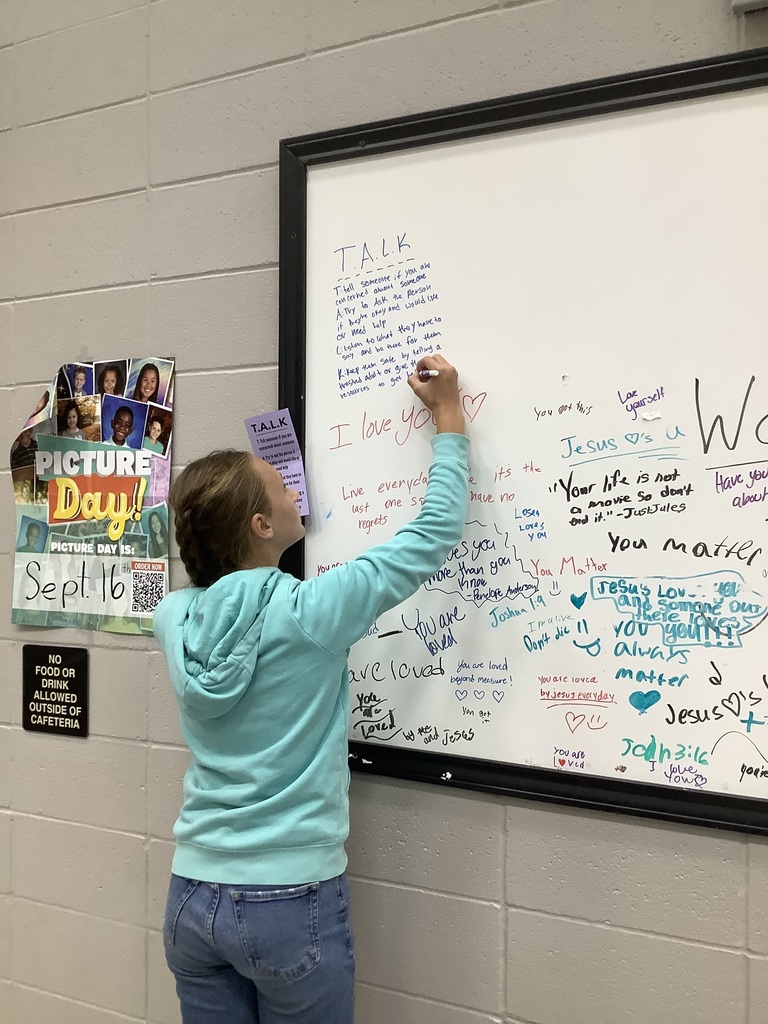 T.A.L.K
T: tell someone if you are
concerned about someone
A: Try to Ask the person
if they're okay and would like
or need help
L: Listen to what they have to
say and be there for them
K: Keep them safe by telling a
trusted adult or give
resources to get
I love yo
Live everyday it's the
last one have no
regrets
You got this
Love
yourself
Jesus ♡'s u
"Your life is not
a movie so don't
end it." -JustJules
Have you
about
Loves
you
you matter
You Matter
loves you
more than you
know
-Penelope Anderson
Joshua 1:9
I'm alive
Don't die !!
Jesus Lov you
and someone out
there loves
you you!!!
always
matter
You are
loved
are loved
you are loved
beyond measure!
You got
it
you are loved
by Jesus everyday
You
are
Loved
by me and Jesus
Jesus ♡'s
John 3:16
You are
Loved
I love
You
you're
T.A.L.K
PICTURE
Day!
PICTURE DAY IS:
Sept. 16th
ORDER NOW
NO
FOOD OR
DRINK
ALLOWED
OUTSIDE OF
CAFETERIA